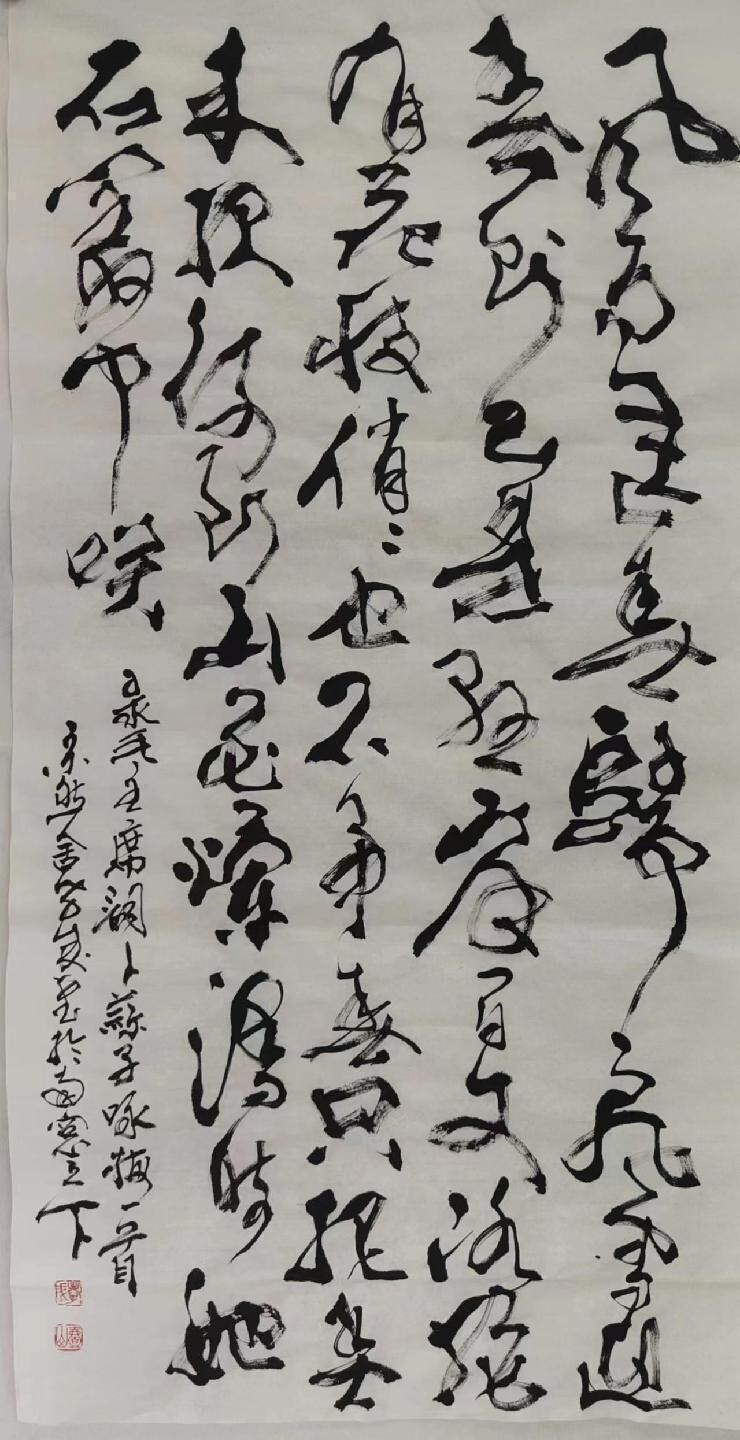 风雨送春歸飛雪迎
春到已是懸崖百丈冰猶
有花枝俏〻也不争春只把春
来报待到山花爛漫時她
在叢中笑
录毛主席词卜蘇子咏梅一首
於南窗之下